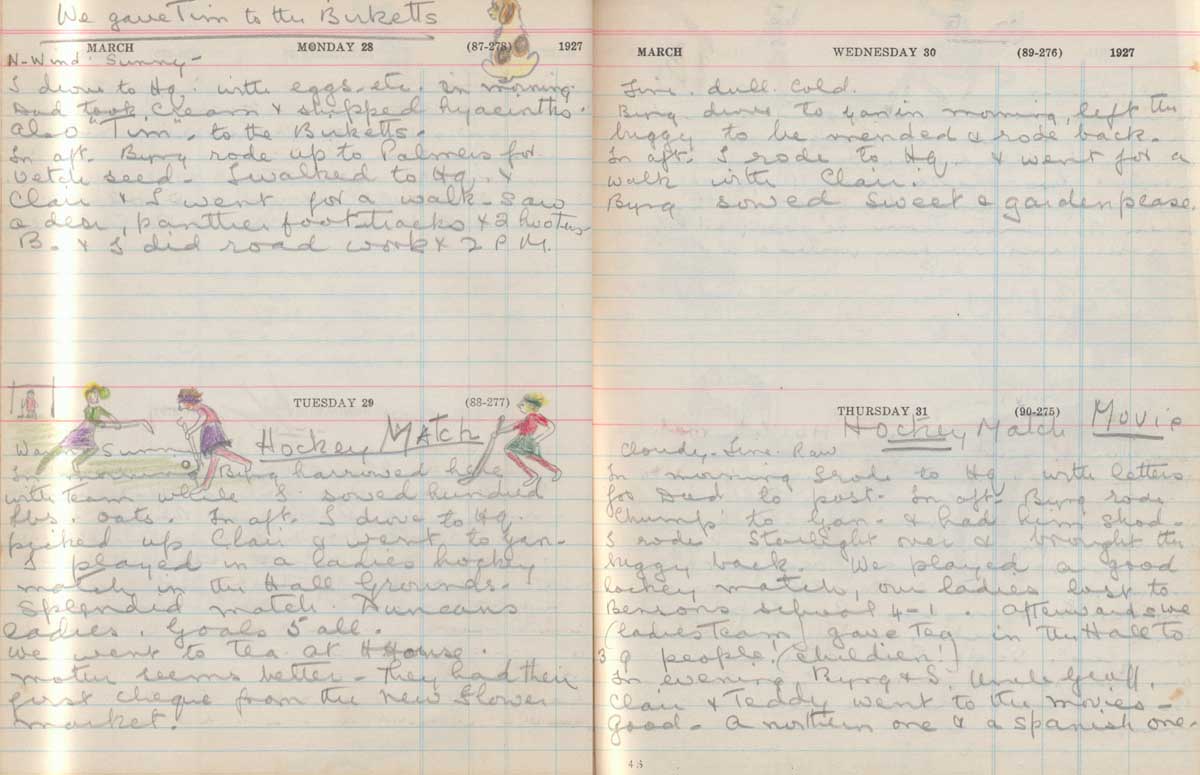 We gave Tim to the Birketts
MARCH MONDAY 28 (87-278) 1927
N-Wind Sunny-
I drove to Hq. with eggs etc. in morning.
Dad took Cream & shipped hyacinths.
also "Tim" to the Birketts.
In aft. Byng rode up to Palmers for
vetch seed. I walked to Hq. &
Clair & I went for a walk - saw
a deer, panther foottracks & 2 hooters
B. & I did road work & 2 P M.
TUESDAY 29 (88-277)
Hockey MATCH
Sunny
In morning Byng harrowed here
with Team while I sowed hundred
lbs. oats. In aft. I drove to Hq.
picked up Clair & went to Gan-
I played in a ladies hockey
match in the Hall Grounds.
Splendid match. Duncans
ladies. Goals 5 all.
We went to Tea at H House.
Mother seems better - They had their
first cheque from the new flower
market.
MARCH WEDNESDAY 30 (89-276) 1927
Fine. dull. Cold.
Byng drove to Gan in morning, left the
buggy to be mended & rode back.
In aft. I rode to Hq. & went for a
walk with Clair.
Byng sowed sweet & garden pease.
THURSDAY 31 (90-275)
Hockey Match Movie
Cloudy. Fine. Raw
In morning I rode to Hq. with letters
for Dad to post. In aft. Byng rode
'Chump' to Gan- & had him shod-
I rode Starlight over & brought the
buggy back. We played a good
hockey match, our ladies lost to
Bensons school 4-1. Afterwards we
(ladies Team) gave Tea in the Hall to
39 people! (children!)
In evening Byng & I, Uncle Griff,
Clair & Teddy went to the movies -
good - A northern one & a Spanish one.
46